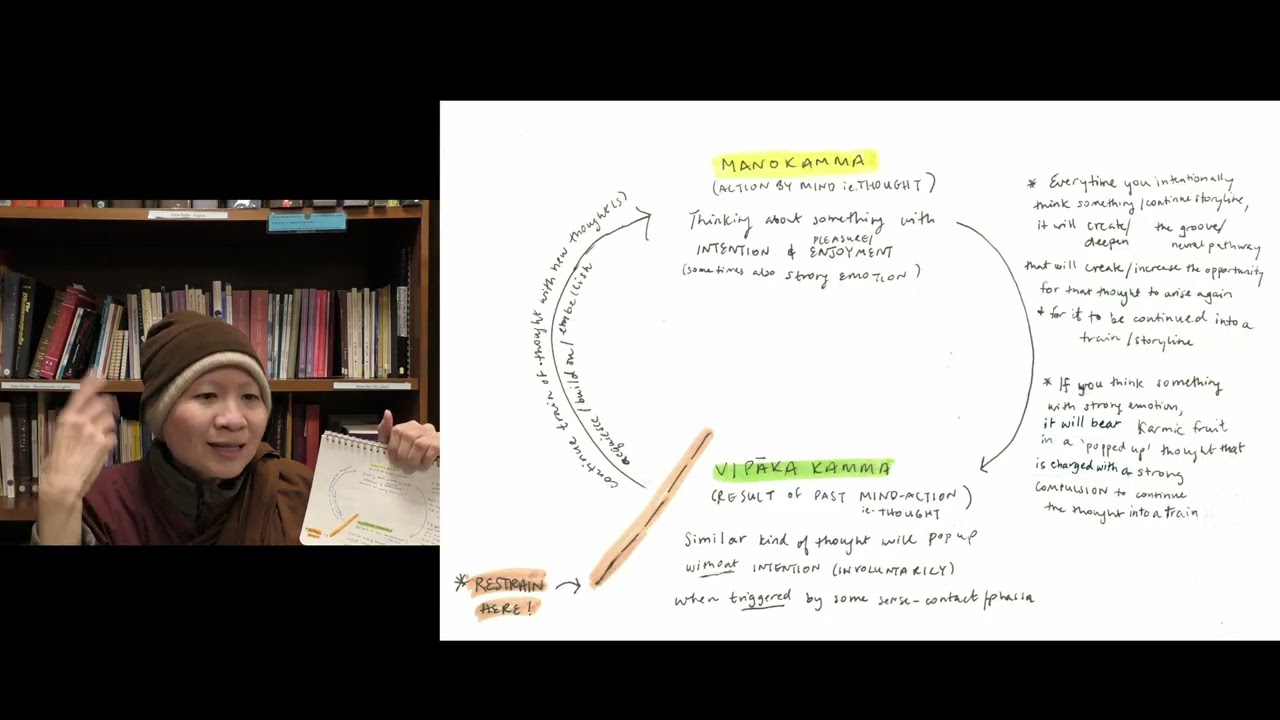 MANOKAMMA
(ACTION BY MIND ie. THOUGHT)
Thinking about something with
INTENTION & PLEASURE/ ENJOYMENT
(sometimes also STRONG EMOTION)
continue train of thought with new thought(s)
acquiesce / build on / embellish
VIPĀKA KAMMA
(RESULT OF PAST MIND-ACTION)
ie. THOUGHT
Similar kind of thought will pop up
without INTENTION (INVOLUNTARILY)
when triggered by some sense-contact/phassa
* RESTRAIN
HERE!
* Everytime you intentionally
think something/continue storyline,
it will create/ the groove/
deepen neural pathway
that will create/increase the opportunity
for that thought to arise again
+ for it to be continued into a
train/storyline
* If you think something
with strong emotion,
it will bear karmic fruit
in a 'popped up' thought that
is charged with a strong
COMPULSION to continue
the thought into a train